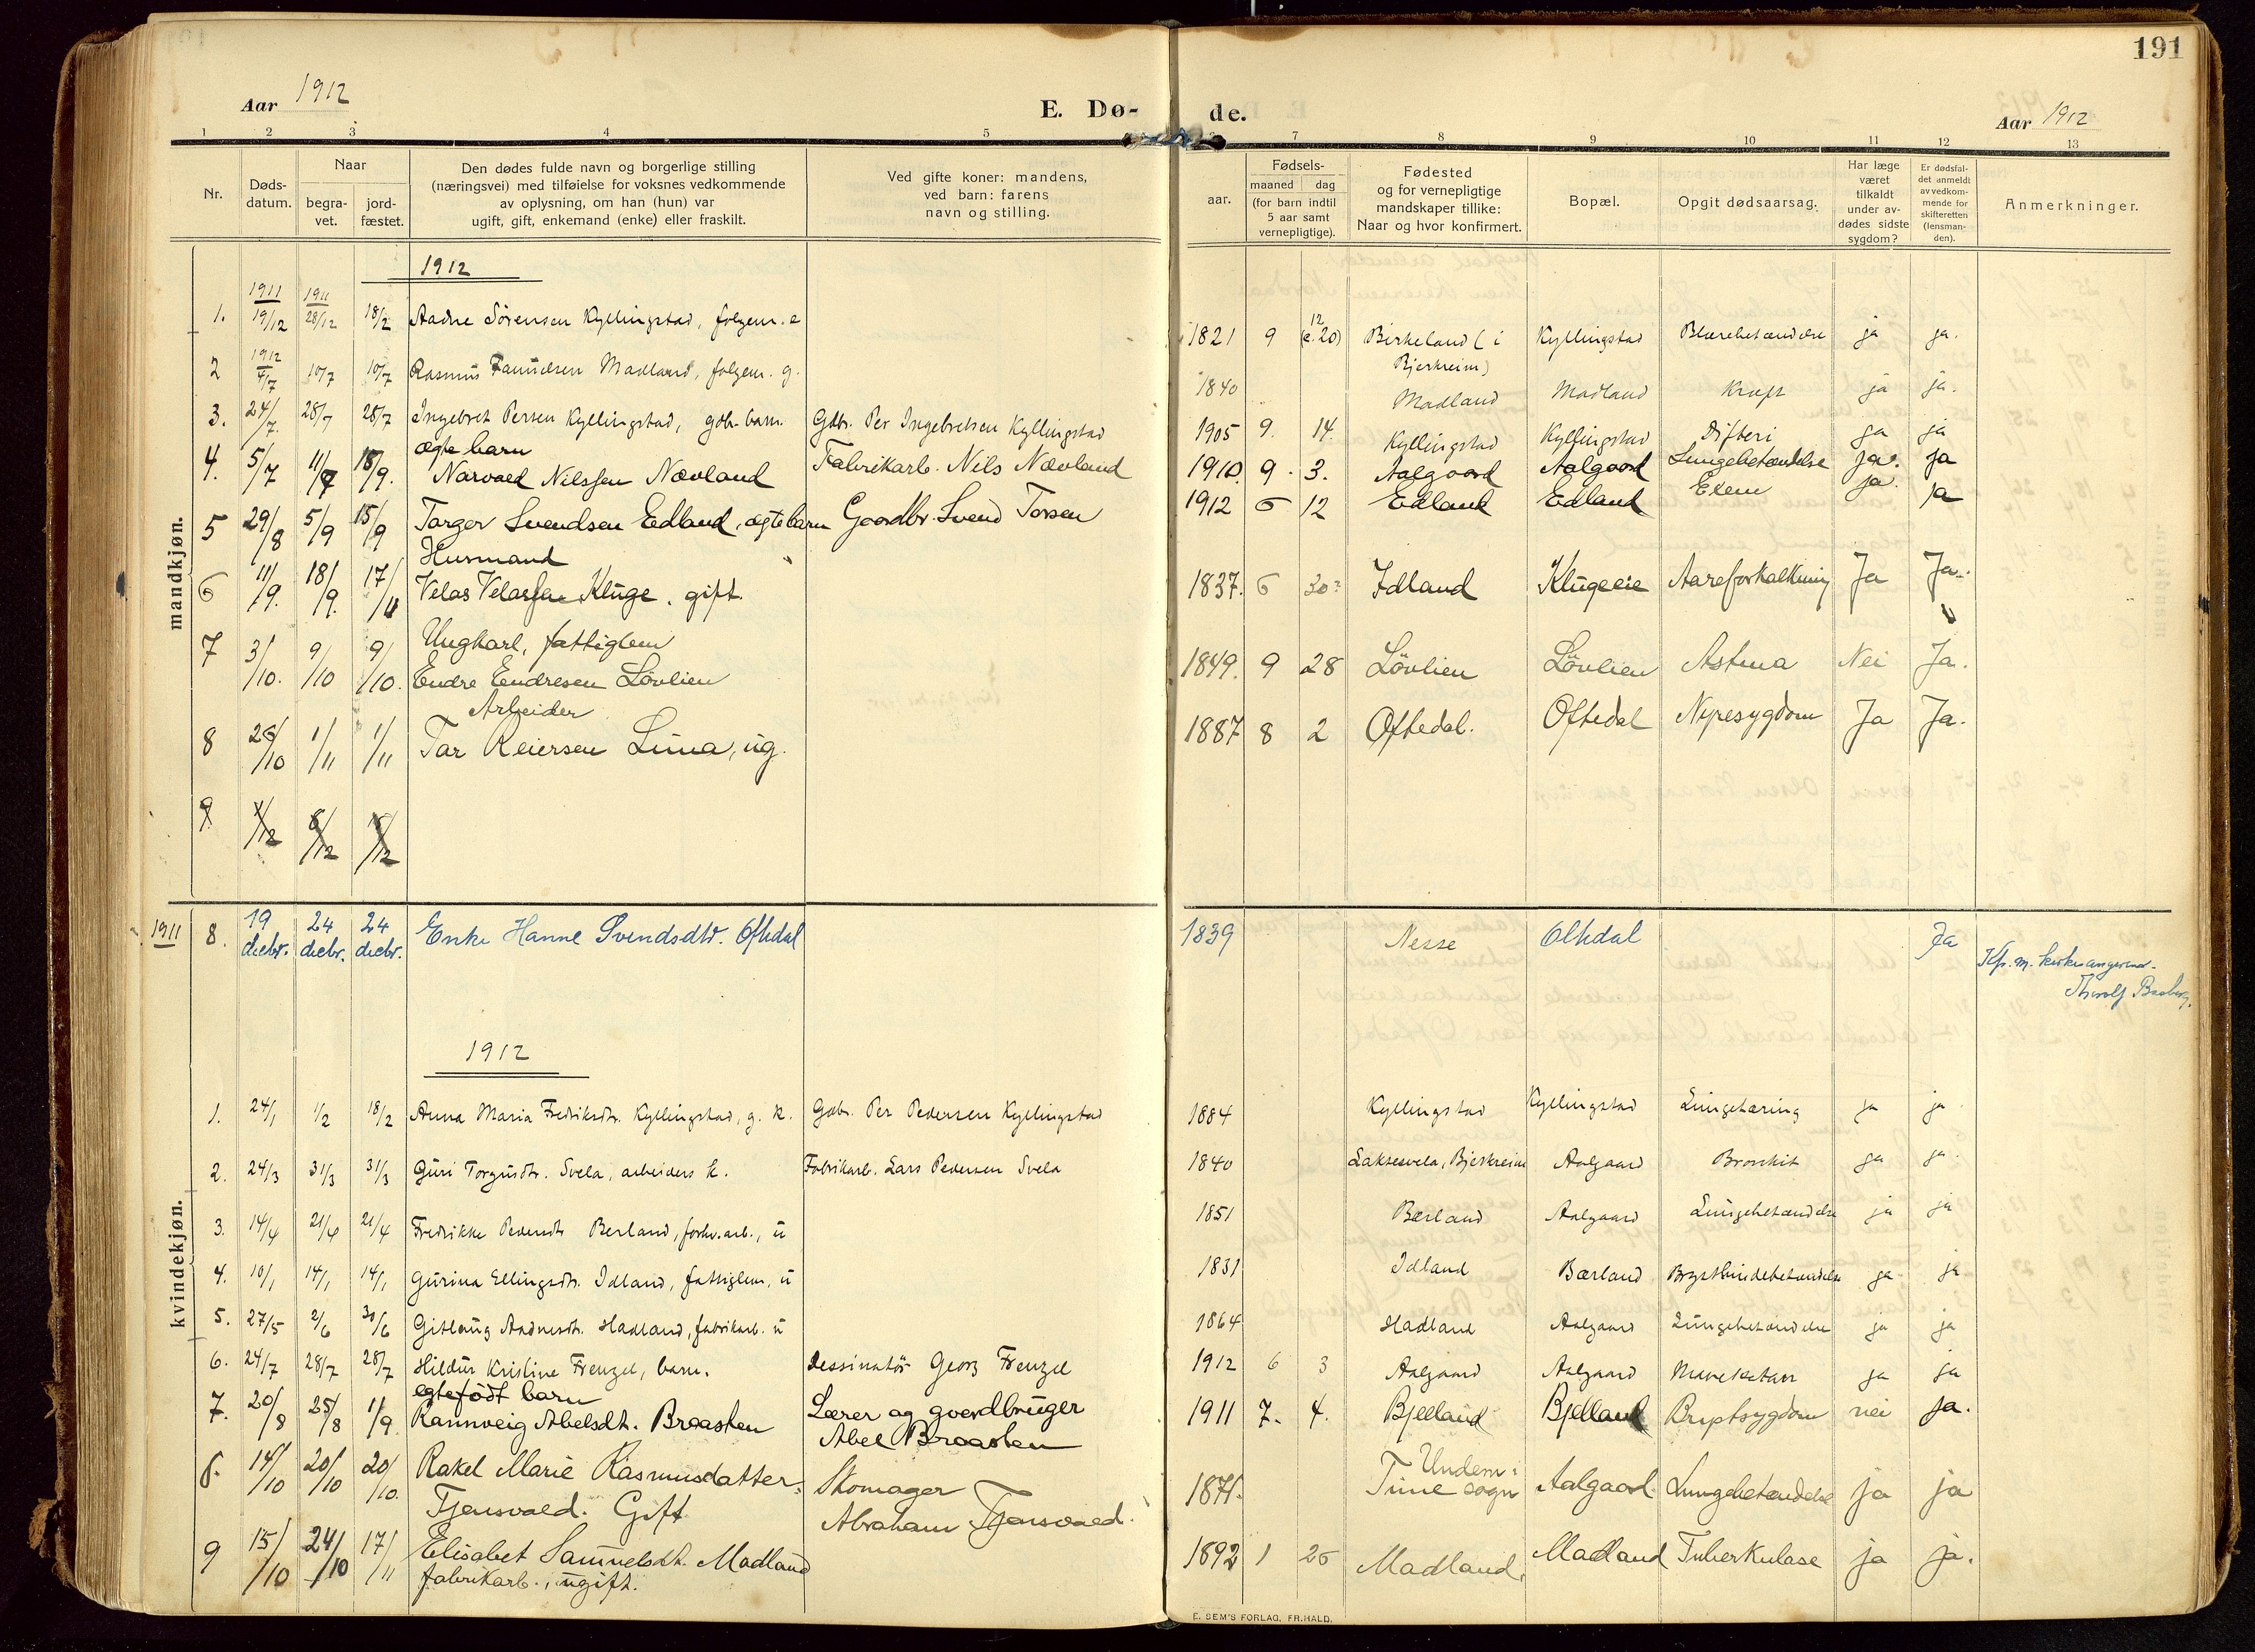 191
Aar 1912
E. Dø-
de.
Aar 1912
1 2 3 4 5
7 8 9 10 11 12 13
Nr.
Døds-
datum.
Naar
begra-
vet.
jord-
fæstet.
Den dødes fulde navn og borgerlige stilling
(næringsvei) med tilføielse for voksnes vedkommende
av oplysning, om han (hun) var
ugift, gift, enkemand (enke) eller fraskilt.
Ved gifte koner: mandens,
ved barn: farens
navn og stilling.
Fødsels-
aar.
maaned dag
(for barn indtil
5 aar samt
vernepligtige).
Fødested
og for vernepligtige
mandskaper tillike:
Naar og hvor konfirmert.
Bopæl.
Opgit dødsaarsag.
Har læge
været
tilkaldt
under av-
dødes sidste
sygdom?
Er dødsfal-
det anmeldt
av vedkom-
mende for
skifteretten
(lensman-
den).
Anmerkninger.
mandkjøn.
1912
1911 1911
1. 19/12 28/12 18/2 Aadne Sörensen Kyllingstad, folgem. e
1821 9 12 (e. 20) Birkeland (i Kyllingstad Blærebetændelse ja ja.
Bjerkreim)
1912
2 4/7 10/7 10/7 Rasmus Samuelsen Madland, folgem. g.
1840 Madland Madland Kræft ja ja.
3. 24/7. 28/7 28/7 Ingebret Persen Kyllingstad, gdb. barn. Gdbr. Per Ingebretsen Kyllingstad
1905 9. 14. Kyllingstad Kyllingstad Difteri ja ja
ægte barn
4. 5/7 11/7 18/9. Narvald Nilssen Nævland Fabrikarb. Nils Nævland
1910. 9. 3. Aalgaard Aalgaard Lungebetændelse ja. ja
5 29/8 5/9 15/9 Torger Svendsen Eedland, ægte barn Gaardbr. Svend Torsen
1912 6 12 Edland Edland Exem ja. ja
Husmand
6 11/9. 18/9. 17/11 Velas Velassen Kluge, gift.
1837. 6 30? Idland Klugeeie Aareforkalkning Ja Ja.
Ungkarl, fattiglem
7 3/10. 9/10 9/10. Endre Eendresen Lövlien
1849. 9 28 Lövlien Lövlien Astma Nei Ja.
Arbeider
8 26/10 1/11 1/11 Tar Reiersen Lima, ug.
1887 8 2 Oftedal. Oftedal Nyresygdom Ja Ja.
9
kvindekjøn.
1911 8. 19 decbr. 24 decbr. 24 decbr. Enke Hanne Svendsdtr. Oftedal
1839 Nesse Oltedal Ja
1912
1. 24/1 1/2 18/2 Anna Maria Fredriksdtr. Kyllingstad, g. k. Gdbr. Per Pedersen Kyllingstad
1884 Kyllingstad Kyllingstad Lungetæring ja ja
2. 24/3 31/3 31/3 Guri Torgusdtr. Svela, arbeiders k. Fabrikarb. Lars Pedersen Svela
1840 Laksesvela, Bjerkreim Aalgaard Bronkit ja ja.
3. 14/4 21/4 21/4 Fredrikke Pedersdtr Berland, forhv. arb., u
1851 Bærland Aalgaard Lungebetændelse ja ja
4. 10/1 14/1 14/1 Gurina Ellingsdtr. Idland, fattiglem, u
1831 Idland Bærland Brysthindebetændelse ja ja
5. 27/5 2/6 30/6 Gitlaug Aadnesdtr. Hadland, fabrikarb. u
1864 Hadland Aalgaard Lungebetændelse ja ja
6. 24/7 28/7 28/7 Hildur Kristine Frenzel, barn. Dessinatör Georg Frenzel
1912 6 3 Aalgaard Aalgaard Mavekatarr ja ja
egtefödt barn
7. 20/8 25/8 1/9. Rannveig Abelsdt. Braasten Lærer og gaardbruger
Abel Braasten
1911 7. 4. Bjelland Bjelland Brystsygdom nei ja.
8. 14/10 20/10 20/10. Rakel Marie Rasmusdatter Skomager
Tjensvold. Gift. Abraham Tjensvold.
1871. Undem i Time sogn Aalgaard. Lungebetændelse ja ja
9 15/10 24/10 17/11 Elisabet Samuelsdt. Madland
fabrikarb., ugift.
1892 1 26 Madland, Madland Tuberkulose ja ja.
E. SEM'S FORLAG, FR.HALD.